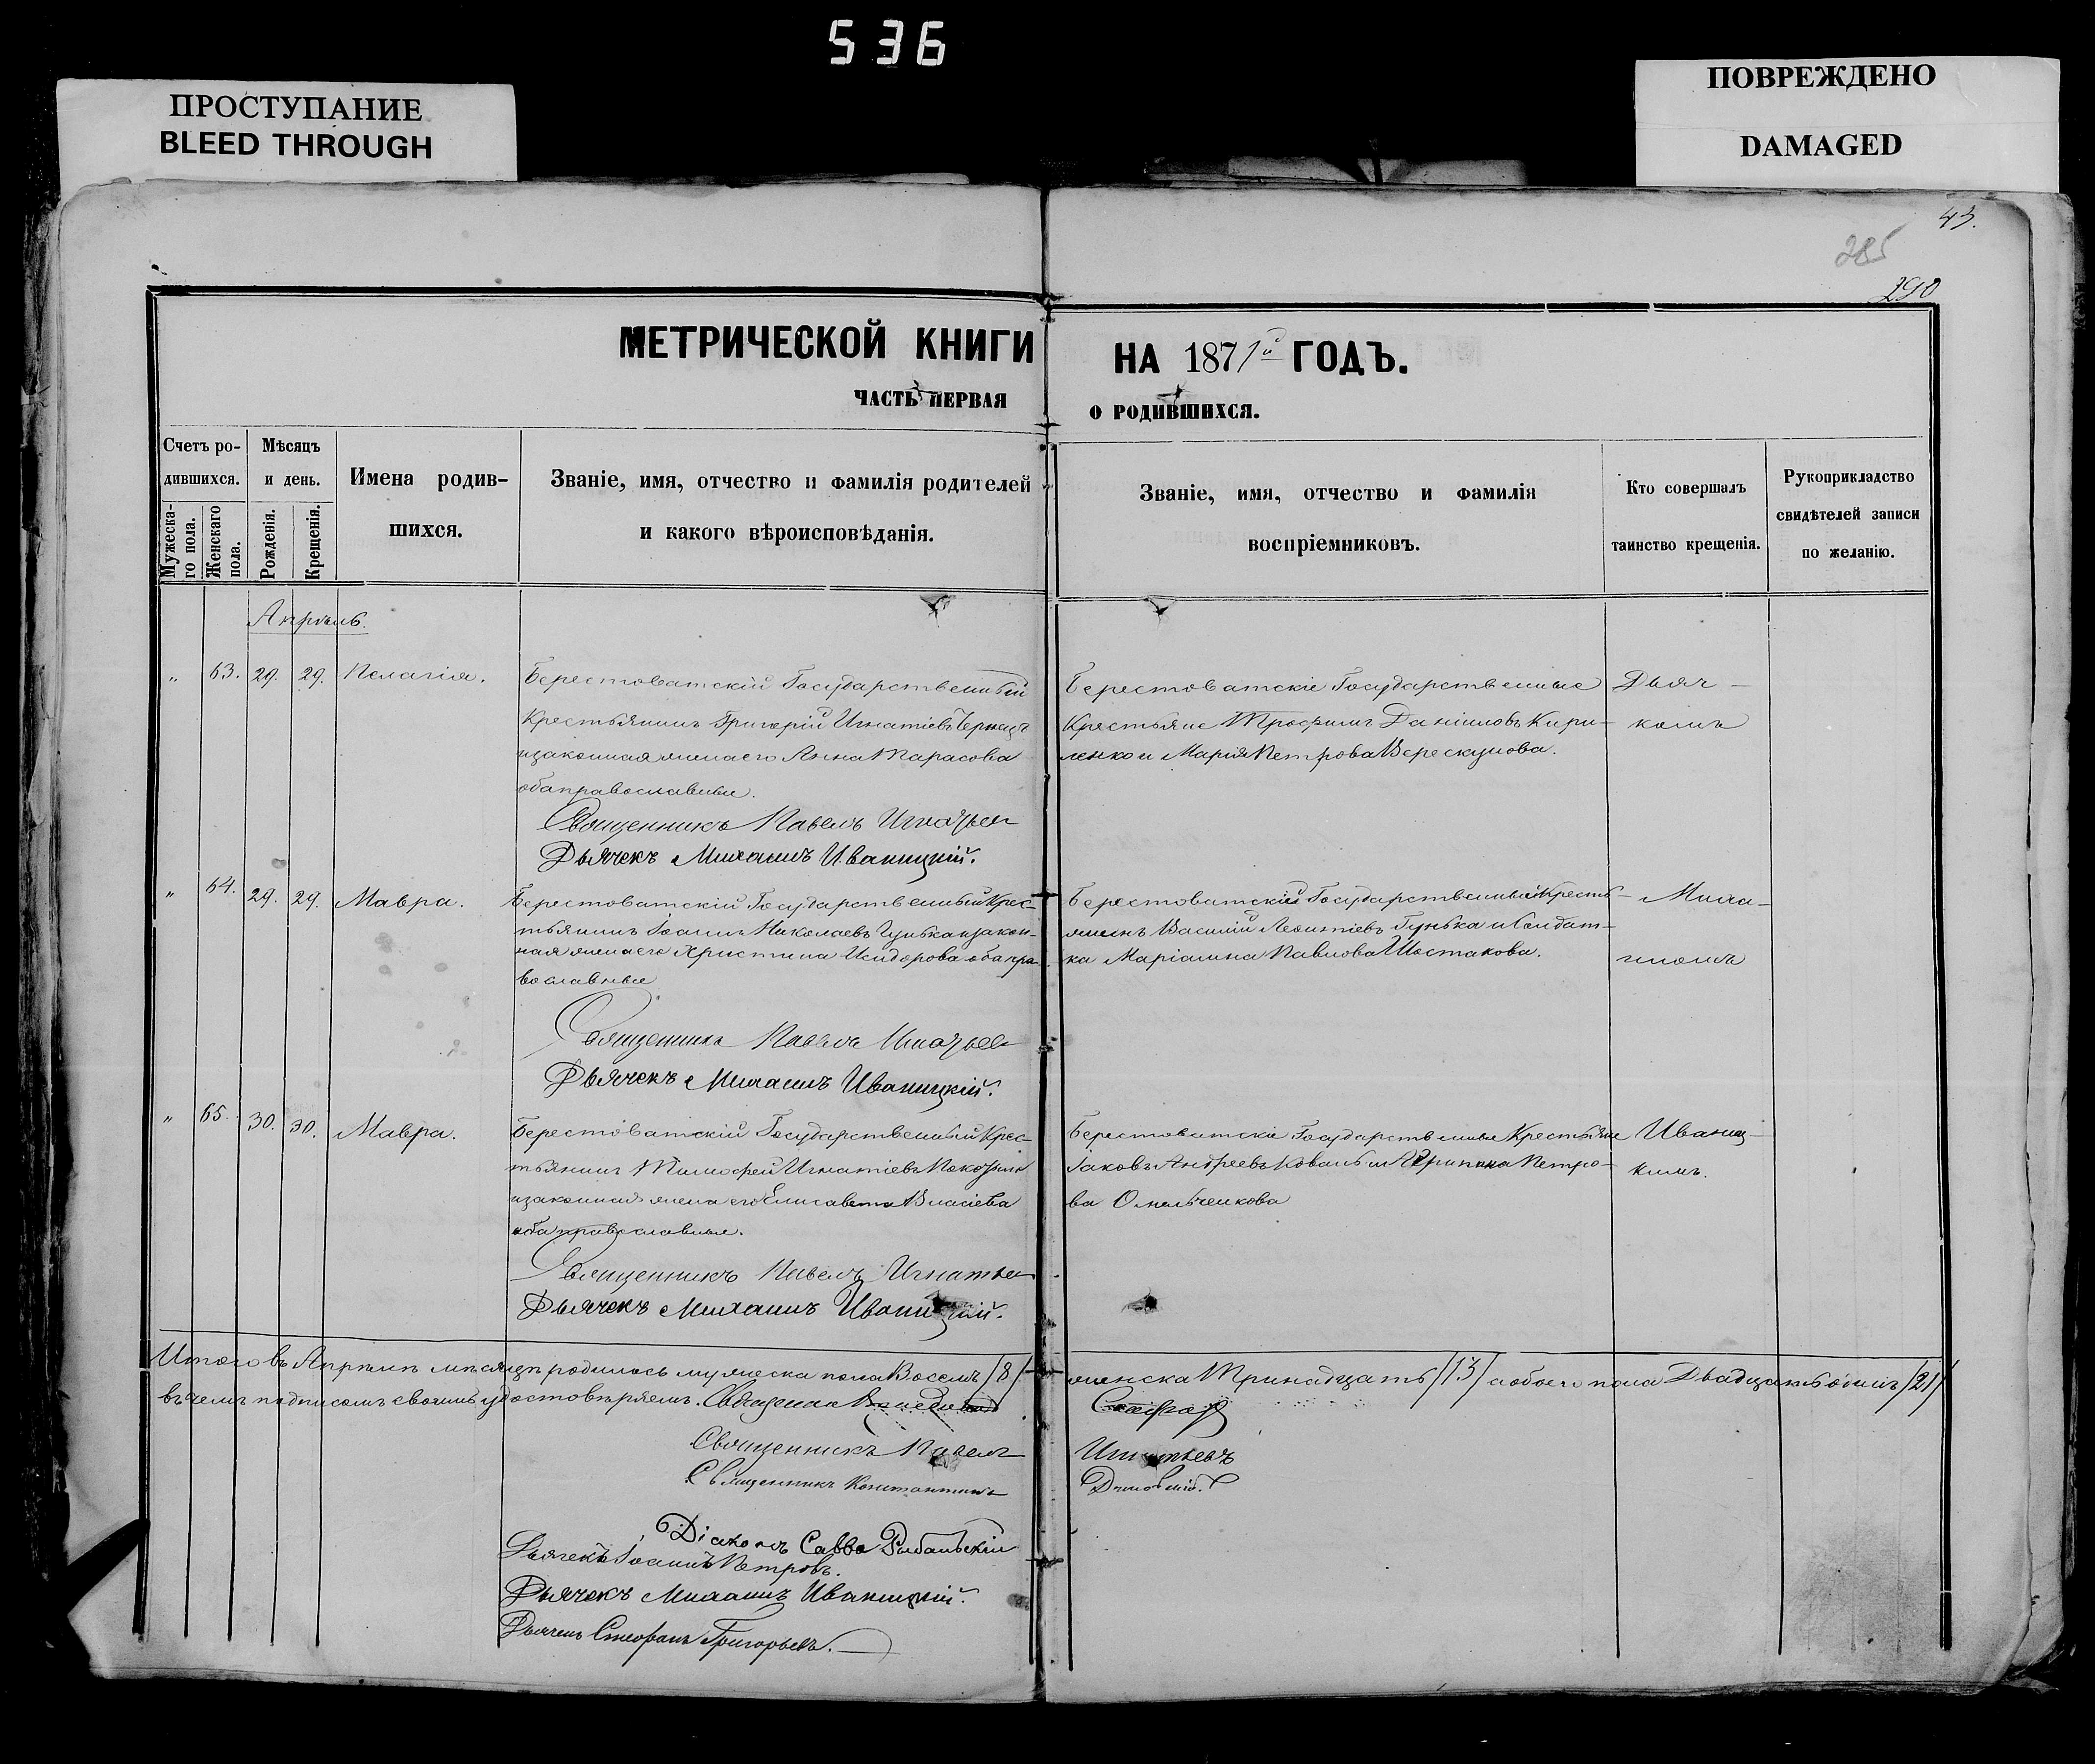 536
ПРОСТУПАНИЕ
BLEED THROUGH
ПОВРЕЖДЕНО
DAMAGED
43.
285
290
МЕТРИЧЕСКОЙ КНИГИ НА 1871й ГОДЪ.
ЧАСТЬ ПЕРВАЯ О РОДИВШИХСЯ.
Счетъ ро-
дившихся.
Мужеска-
го пола.
Женскаго
пола.
Мѣсяцъ
и день.
Рожденія.
Крещенія.
Имена родив-
шихся.
Званіе, имя, отчество и фамилія родителей
и какого вѣроисповѣданія.
Званіе, имя, отчество и фамилія
воспріемниковъ.
Кто совершалъ
таинство крещенія.
Рукоприкладство
свидѣтелей записи
по желанію.
Апрѣль.
„ 63. 29. 29. Пелагія.
Берестоватскій Государственный
Крестьянинъ Григорій Игнатіевъ
и законная жена его Анна Тарасова
оба православные.
Священникъ Павелъ Игнатьев
Дьячекъ Михаилъ Иваницкій.
Берестоватскіе Государственные
Крестьяне Трофимъ Даніиловъ Кири-
ленко и Марія Петрова Верескунова.
Дьяч-
комъ
„ 64. 29. 29. Мавра.
Берестоватскій Государственный Крес-
тьянинъ Іоаннъ Николаевъ Гунька и закон-
ная жена его Христина Исидорова оба пра-
вославные
Священникъ Павелъ Игнатьев
Дьячекъ Михаилъ Иваницкій.
Берестоватскій Государственный Кресть-
янинъ Василій Леонтіевъ Гунька и Солдат-
ка Маріанна Павлова Шостакова.
Миха-
иломъ
„ 65. 30. 30. Мавра.
Берестоватскій Государственный Крес-
тьянинъ Тимофей Игнатіевъ
и законная жена его Елисавета Власіева
оба православные.
Священникъ Павелъ Игнатьев
Дьячекъ Михаилъ Иваницкій.
Берестоватскіе Государственные Крестьяне
Іаковъ Андреевъ Коваль и Агрипина Петро-
ва Омельченкова
Иваниц-
кимъ.
Итого въ Апрѣлѣ мѣсяцѣ родилось мужеска пола Восемь /8/ женска Тринадцать /13/ а обоего пола Двадцать одинъ /21/
въ чемъ подписомъ своимъ удостовѣряемъ. Священник
Священникъ Павелъ Игнатьевъ
Священникъ Константинъ
Діаконъ Савва Рыбальскій
Дьячекъ Іоаннъ Петровъ.
Дьячекъ Михаилъ Иваницкій.
Дьячекъ Стефанъ Григорьевъ.